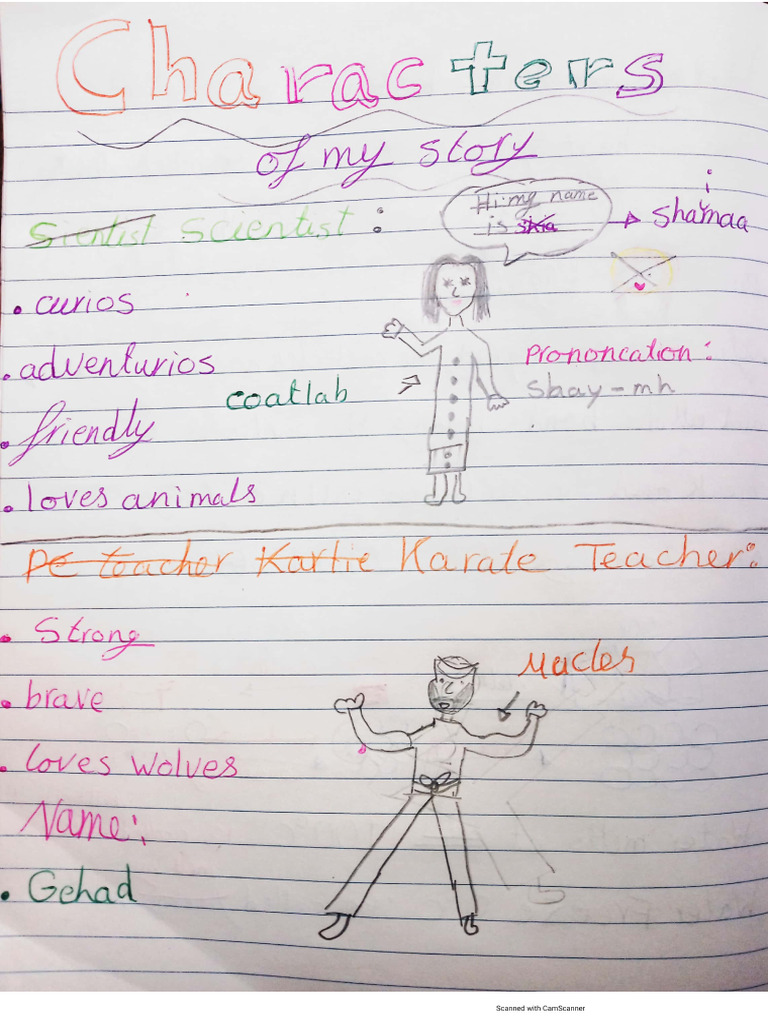 Characters
of my story
Sientist Scientist :
Hi my name
is skia
Shaimaa
• curios
• adventurios
• friendly
• loves animals
coatlab
Prononcation :
shay-mh
PE teacher Kartie Karate Teacher:
• Strong
• brave
• loves wolves
Macles
Name:
• Gehad
Scanned with CamScanner